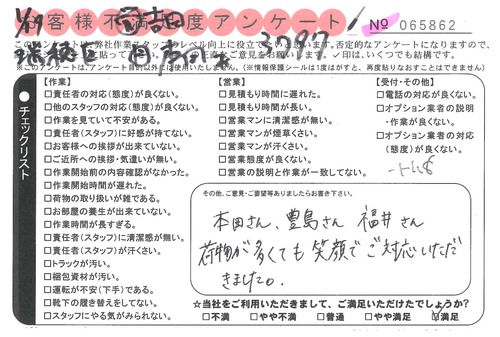 お客様不満足度アンケート
№ 065862
1/19
3097
このアンケートは、弊社作業スタッフのレベル向上に役立て
否定的なアンケートになりますので、
お願いします。✓印は、いくつでも結構です。
※このアンケートは、アンケート目的以外には使用いたしません。(※情報保護シールは1度がはすと、再度貼りなおすことはできません)
チェックリスト
【作業】
□責任者の対応(態度)が良くない。
□他のスタッフの対応(態度)が良くない。
□作業を見ていて不安がある。
□責任者(スタッフ)に好感が持てない。
□お客様への挨拶が出来ていない。
□ご近所への挨拶・気遣いが無い。
□作業開始前の内容確認がなかった。
□作業開始時間が遅れた。
□荷物の取り扱いが雑である。
□お部屋の養生が出来ていない。
□作業時間が長すぎる。
□責任者(スタッフ)に清潔感が無い。
□責任者(スタッフ)が汗くさい。
□トラックが汚い。
□梱包資材が汚い。
□運転が不安(下手)である。
□靴下の履き替えをしてない。
□スタッフにやる気がみられない。
【営業】
□見積もり時間に遅れた。
□見積もり時間が長い。
□営業マンに清潔感が無い。
□営業マンが煙草くさい。
□営業マンが汗くさい。
□営業態度が良くない。
□営業の説明と作業が一致してない。
【受付・その他】
□電話の対応が良くない。
□オプション業者の説明
・作業が良くない。
□オプション業者の対応
(態度)が良くない。
その他、ご意見・ご要望等ありましたらお書き下さい。
本田さん、豊島さん 福井さん
荷物が多くても笑顔でご対応いただ
きました。
☆当社をご利用いただきまして、ご満足いただけたでしょうか?
□不満 □やや不満 □普通 □やや満足 ☑満足